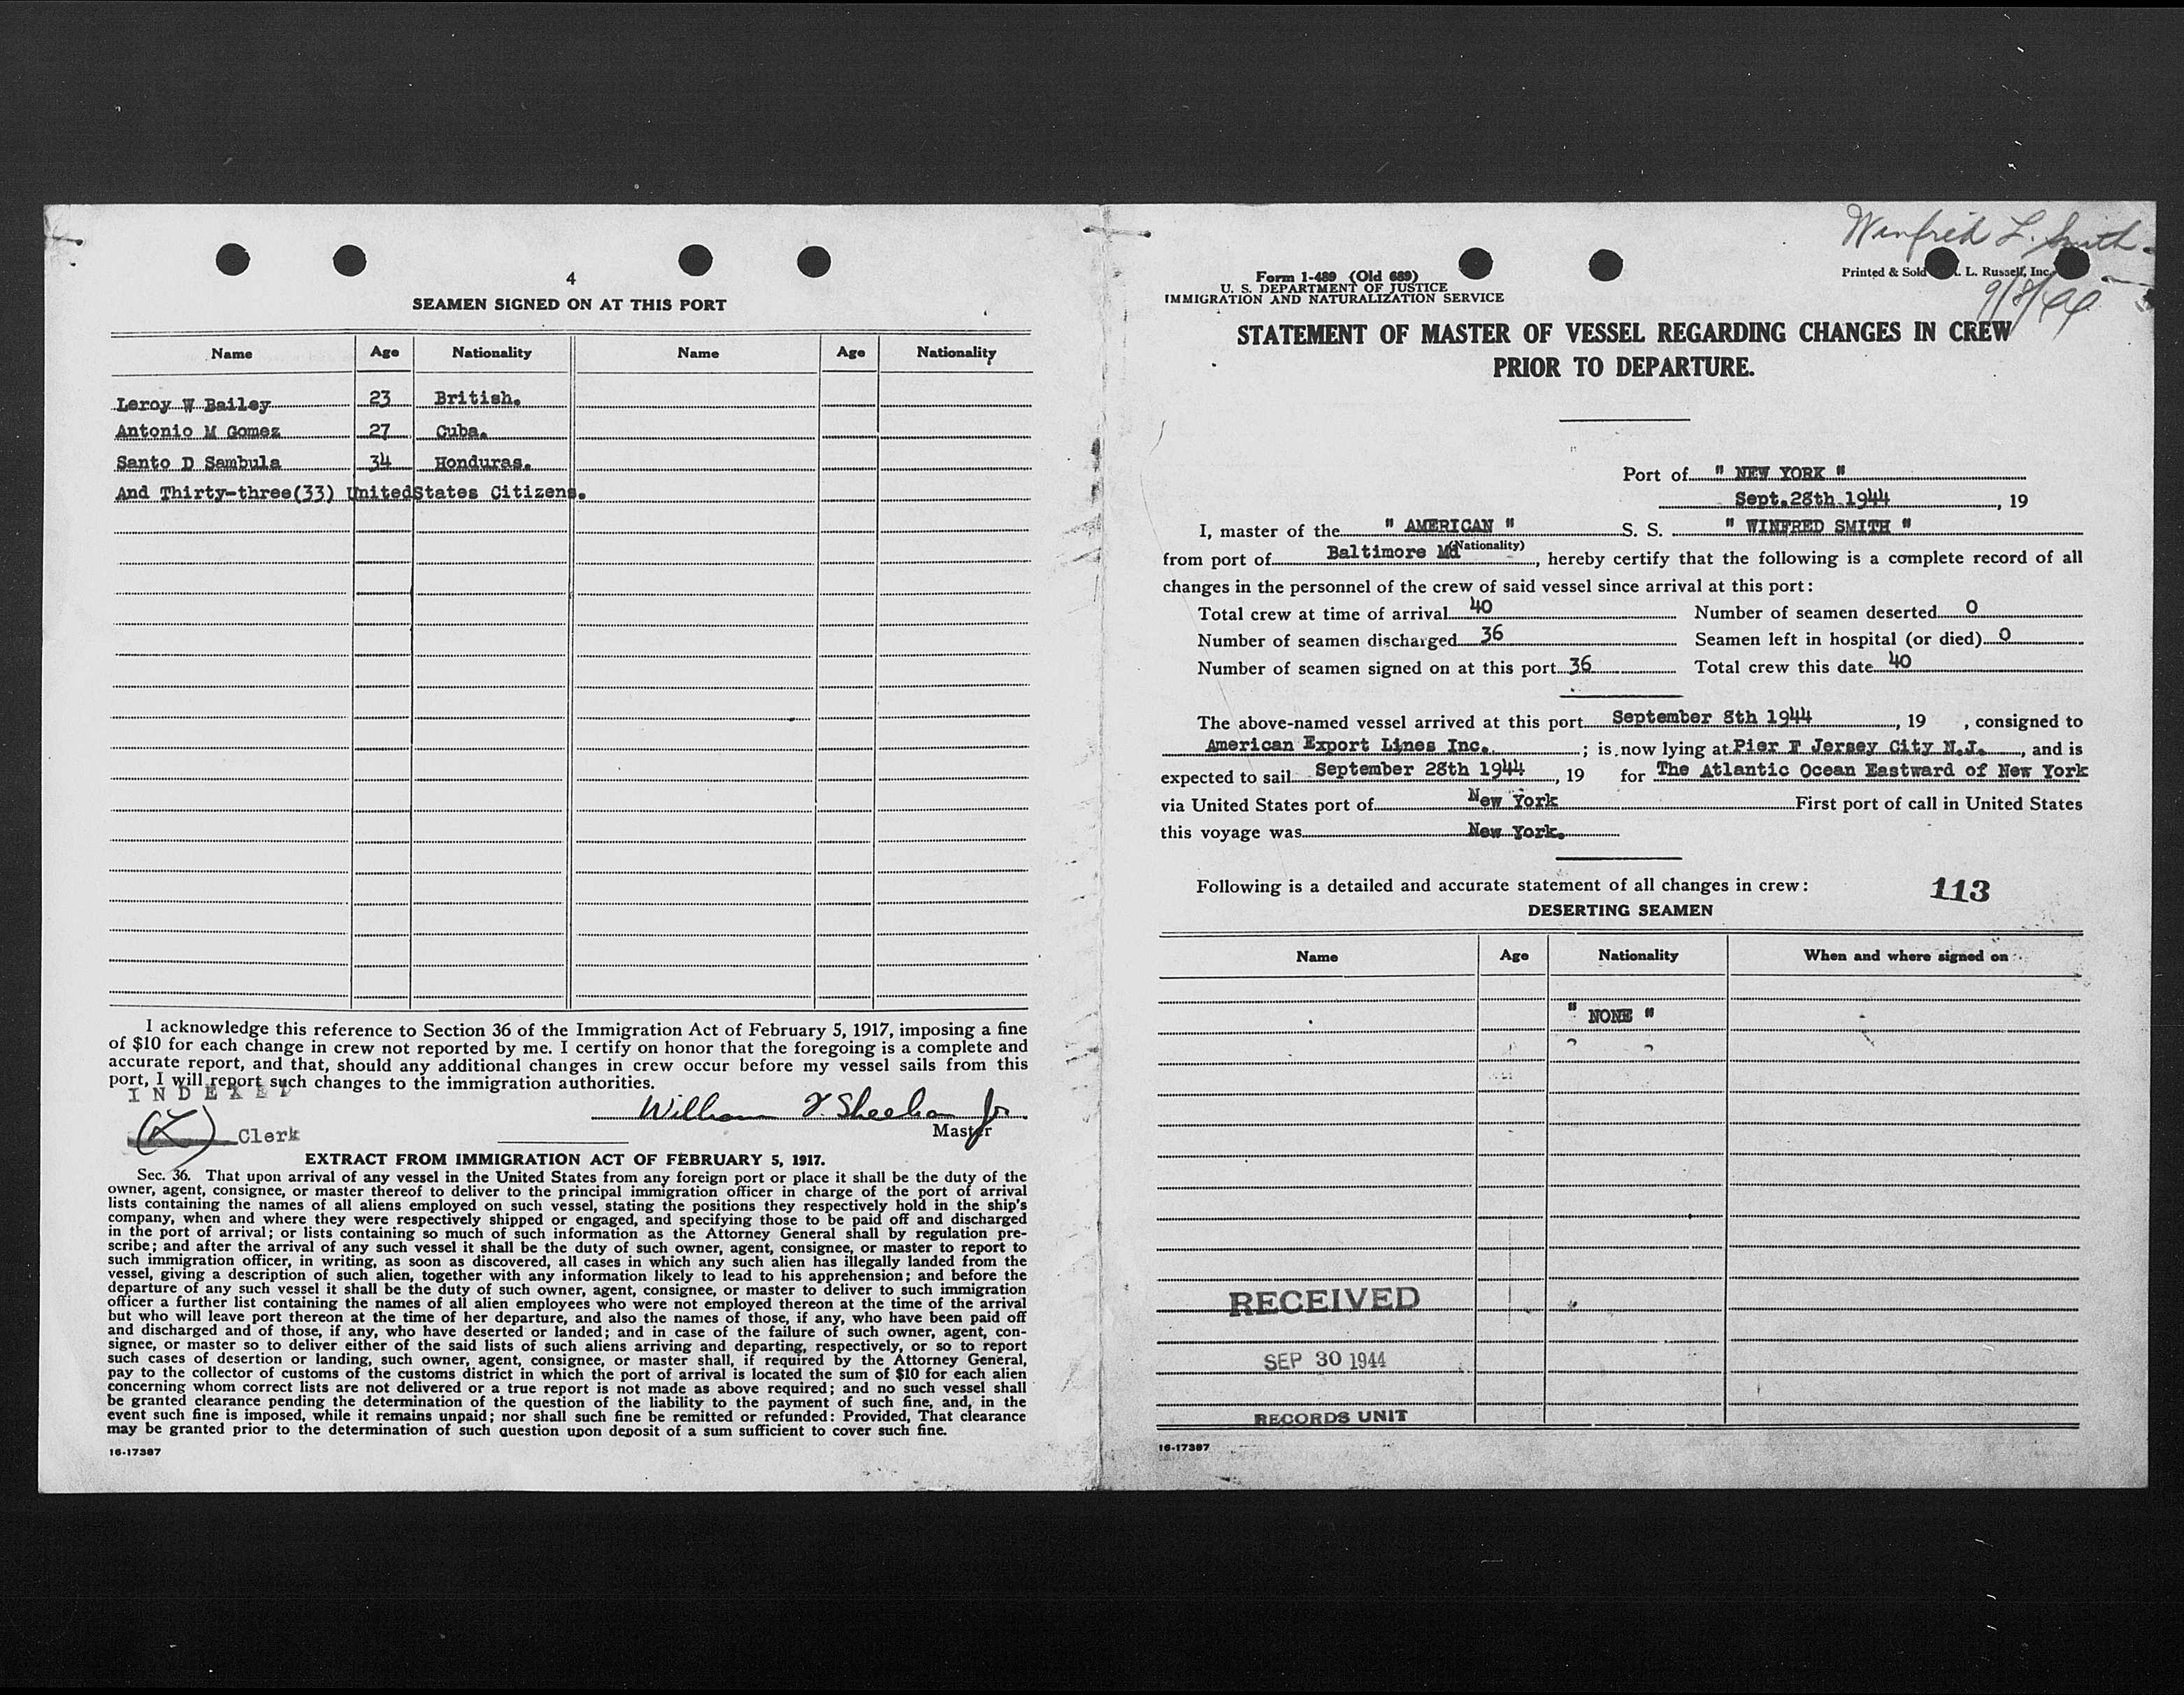 4
SEAMEN SIGNED ON AT THIS PORT
Name Age Nationality Name Age Nationality
Leroy W Bailey 23 British.
Antonio M Gomez 27 Cuba.
Santo D Sambula 34 Honduras.
And Thirty-three(33) UnitedStates Citizens.
I acknowledge this reference to Section 36 of the Immigration Act of February 5, 1917, imposing a fine
of $10 for each change in crew not reported by me. I certify on honor that the foregoing is a complete and
accurate report, and that, should any additional changes in crew occur before my vessel sails from this
port, I will report such changes to the immigration authorities.
INDEXED
William J. Sheehan Jr.
Master
Clerk
EXTRACT FROM IMMIGRATION ACT OF FEBRUARY 5, 1917.
Sec. 36. That upon arrival of any vessel in the United States from any foreign port or place it shall be the duty of the
owner, agent, consignee, or master thereof to deliver to the principal immigration officer in charge of the port of arrival
lists containing the names of all aliens employed on such vessel, stating the positions they respectively hold in the ship's
company, when and where they were respectively shipped or engaged, and specifying those to be paid off and discharged
in the port of arrival; or lists containing so much of such information as the Attorney General shall by regulation pre-
scribe; and after the arrival of any such vessel it shall be the duty of such owner, agent, consignee, or master to report to
such immigration officer, in writing, as soon as discovered, all cases in which any such alien has illegally landed from the
vessel, giving a description of such alien, together with any information likely to lead to his apprehension; and before the
departure of any such vessel it shall be the duty of such owner, agent, consignee, or master to deliver to such immigration
officer a further list containing the names of all alien employees who were not employed thereon at the time of the arrival
but who will leave port thereon at the time of her departure, and also the names of those, if any, who have been paid off
and discharged and of those, if any, who have deserted or landed; and in case of the failure of such owner, agent, con-
signee, or master so to deliver either of the said lists of such aliens arriving and departing, respectively, or so to report
such cases of desertion or landing, such owner, agent, consignee, or master shall, if required by the Attorney General,
pay to the collector of customs of the customs district in which the port of arrival is located the sum of $10 for each alien
concerning whom correct lists are not delivered or a true report is not made as above required; and no such vessel shall
be granted clearance pending the determination of the question of the liability to the payment of such fine, and, in the
event such fine is imposed, while it remains unpaid; nor shall such fine be remitted or refunded: Provided, That clearance
may be granted prior to the determination of such question upon deposit of a sum sufficient to cover such fine.
16-17387
Winfred L. Smith
Form 1-489 (Old 689)
U. S. DEPARTMENT OF JUSTICE
IMMIGRATION AND NATURALIZATION SERVICE
Printed & Sold L. Russell, Inc.
9/8/44
STATEMENT OF MASTER OF VESSEL REGARDING CHANGES IN CREW
PRIOR TO DEPARTURE.
Port of " NEW YORK "
Sept.28th 1944, 19
I, master of the " AMERICAN " S. S. " WINFRED SMITH "
(Nationality)
from port of Baltimore Md, hereby certify that the following is a complete record of all
changes in the personnel of the crew of said vessel since arrival at this port:
Total crew at time of arrival 40 Number of seamen deserted 0
Number of seamen discharged 36 Seamen left in hospital (or died) 0
Number of seamen signed on at this port 36 Total crew this date 40
The above-named vessel arrived at this port September 8th 1944, 19 , consigned to
American Export Lines Inc. ; is now lying at Pier F Jersey City N.J. , and is
expected to sail September 28th 1944, 19 for The Atlantic Ocean Eastward of New York
via United States port of New York First port of call in United States
this voyage was New York.
Following is a detailed and accurate statement of all changes in crew:
113
DESERTING SEAMEN
Name Age Nationality When and where signed on
" NONE "
RECEIVED
SEP 30 1944
RECORDS UNIT
16-17387